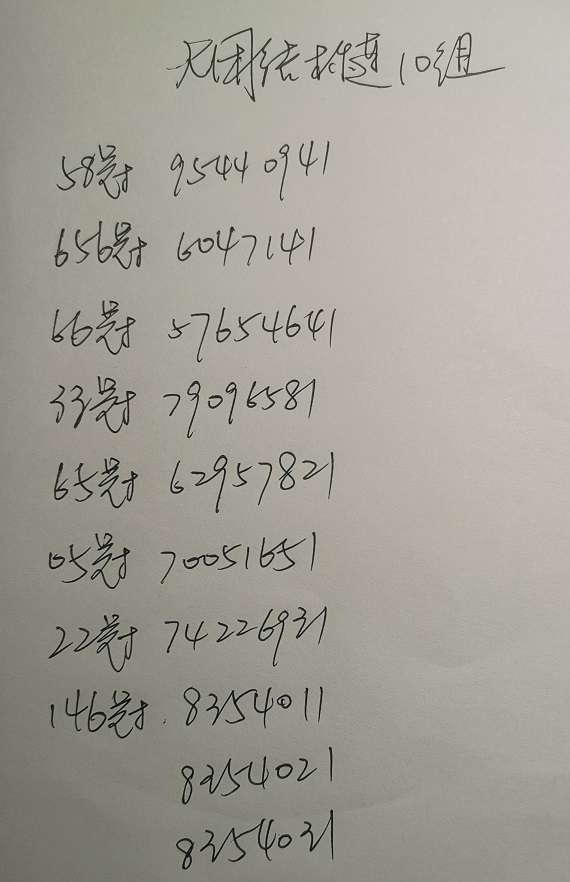 大团结拾连10组
58冠 95440941
656冠 6047141
66冠 57654641
33冠 79096581
65冠 62957821
05冠 70051651
22冠 74226931
146冠 8354011
8354021
8354031